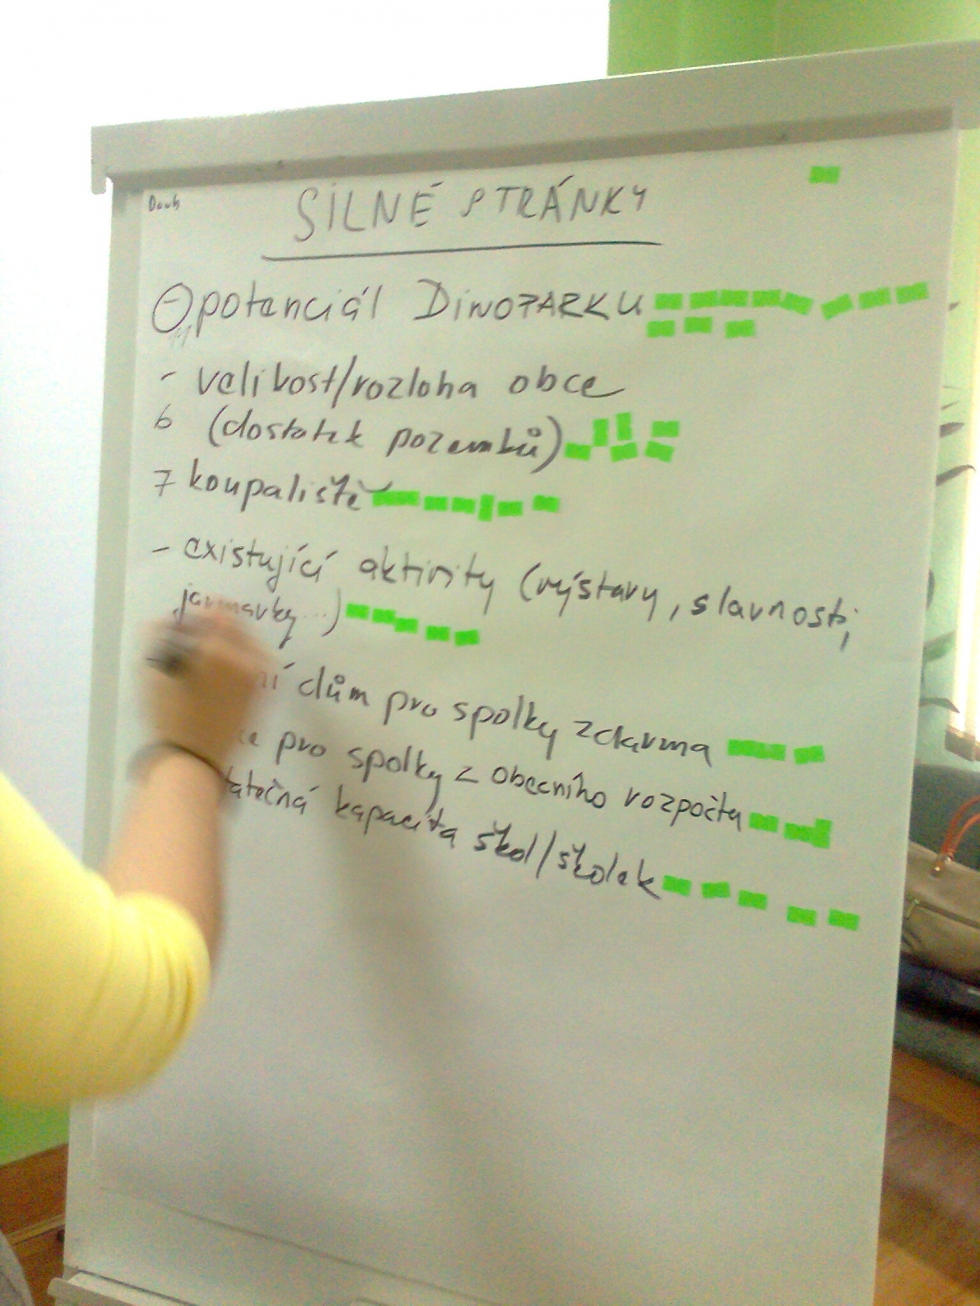 SILNÉ STRÁNKY
- potenciál DINOPARKU
11
- velikost/rozloha obce
6 (dostatek pozemků)
7 koupaliště
- existující aktivity (výstavy, slavnosti,
jarmarky...)
dům pro spolky zdarma
pro spolky z obecního rozpočtu
kapacita škol/školek